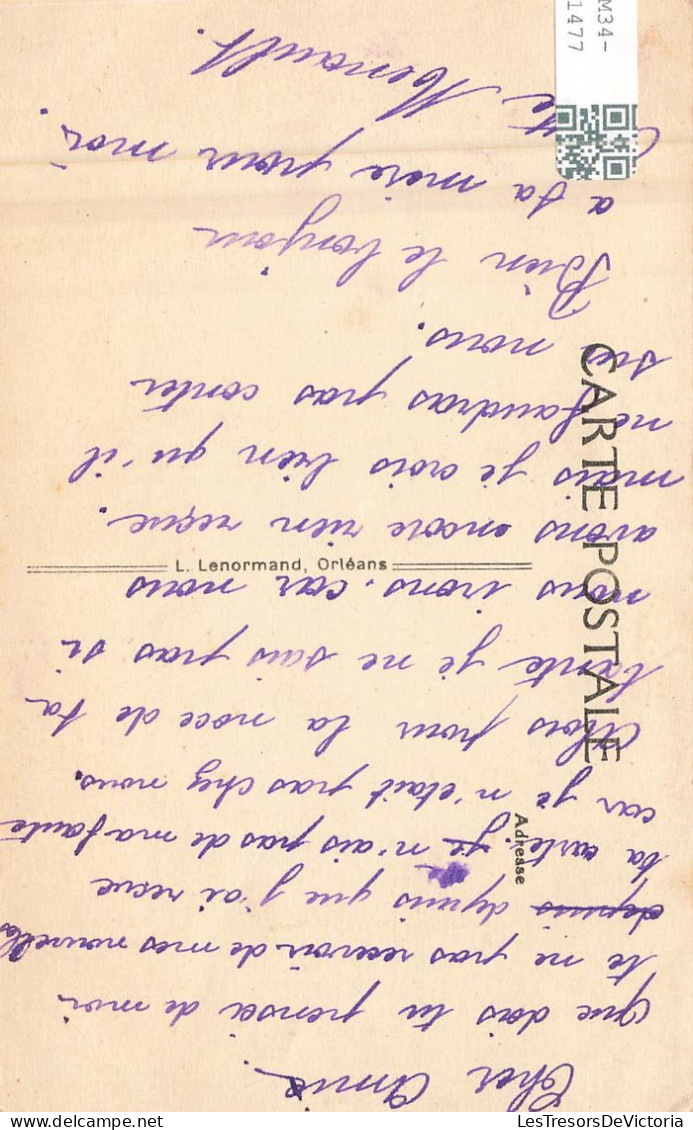 Cher Amie.
Que dois tu pensei de moi.
te ne pas recevoir de mes nouvelles
depuis depuis que j'ai recue
ta carte. je n'ais pas de ma faute
car je n'etait pas chez nous.
Alors pour la noce de ta
tante je ne sais pas si
nous irons. car nous
avons encore rien reçue.
mais je crois bien qu'il
ne faudras pas conter
sur nous.
Bien le bonjour
a ta mere pour moi.
Menault.
CARTE POSTALE
Adresse
L. Lenormand, Orléans
M34-
1477
LesTresorsDeVictoria
LesTresorsDeVictoria